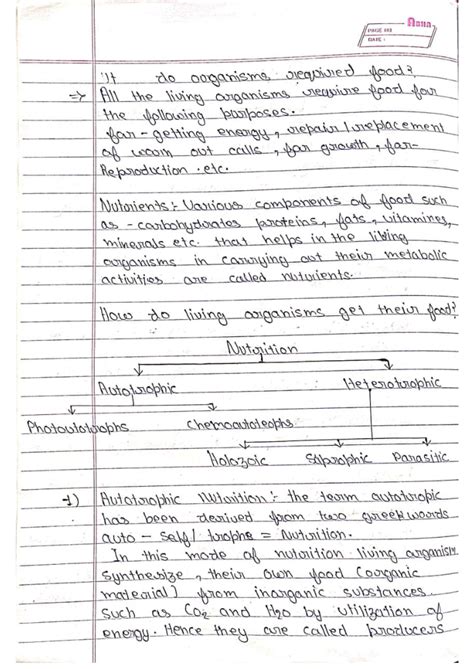 PAGE NO
DATE :
'It do organisms required food?
⇒ All the living organisms require food for
the following purposes.
for - getting energy, repair / replacement
of worn out calls, for growth, for-
Reproduction . etc.
Nutrients :- Various components of food such
as - carbohydrates proteins, fats, vitamines,
minerals etc. that helps in the living
organisms in carrying out their metabolic
activities are called nutrients.
How do living organisms get their food?
Nutrition
Autotrophic Heterotrophic
Photoautotrophs Chemoautotrophs
Holozoic Saprophic Parasitic
1) Autotrophic Nutrition :- the term autotropic
has been derived from two greek words
auto - self / trophs = Nutrition.
In this mode of nutrition living organism
synthesize, their own food (organic
material) from inorganic substances
such as CO2 and H2O by utilization of
energy. Hence they are called producers